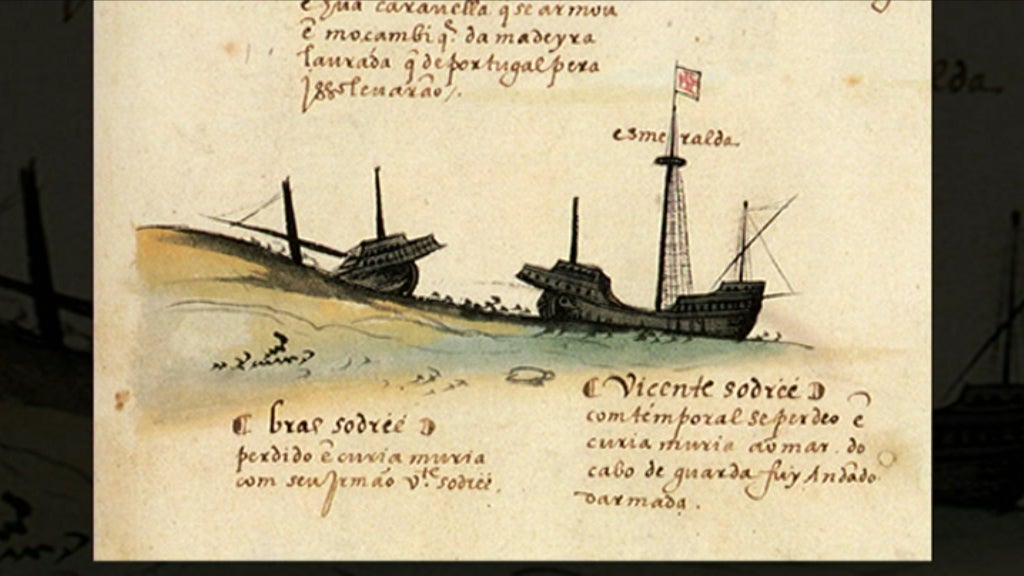 e sua caravella q̃ se armou
ẽ mocambiq̃. da madeyra
laurada q̃ de portugal pera
levarão /.
esmeralda
bras sodreé
perdido ẽ curia muria
com seu Jrmão v.te sodreé.
Vicente sodreé
com temporal se perdeo ẽ
curia muria ao mar. do
cabo de guarda fuy Andãdo
darmada.
lda.